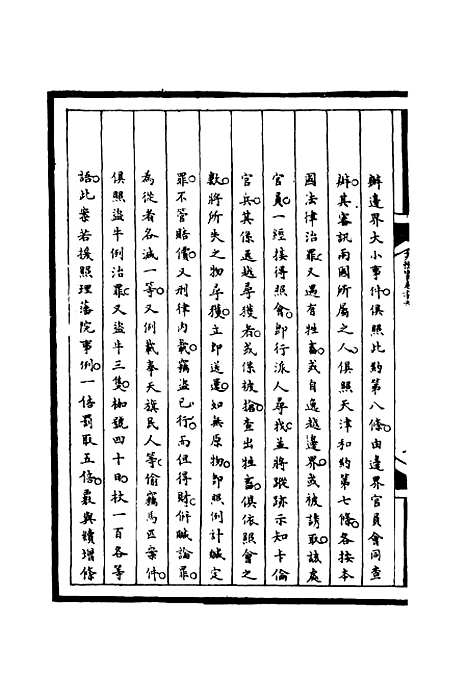 辦邊界大小事件俱照此約第八條由邊界官員會同查
辦其審訊兩國所屬之人俱照天津和約第七條各按本
國法律治罪又遇有牲畜或自逸越邊界或被誘取該處
官員一經接得照會即行派人尋找並將蹤跡示知卡倫
官兵其係逸越尋獲者或係被搶查出牲畜俱依照會之
數將所失之物尋獲立即送還如無原物即照例計贓定
罪不管賠償又刑律內載竊盜已行而但得財併贓論罪
為從者各減一等又例載奉天旗民人等偷竊馬匹案件
俱照盜牛例治罪又盜牛三隻枷號四十日杖一百各等
語此案若援照理藩院事例一倍罰取五倍覈與續增條